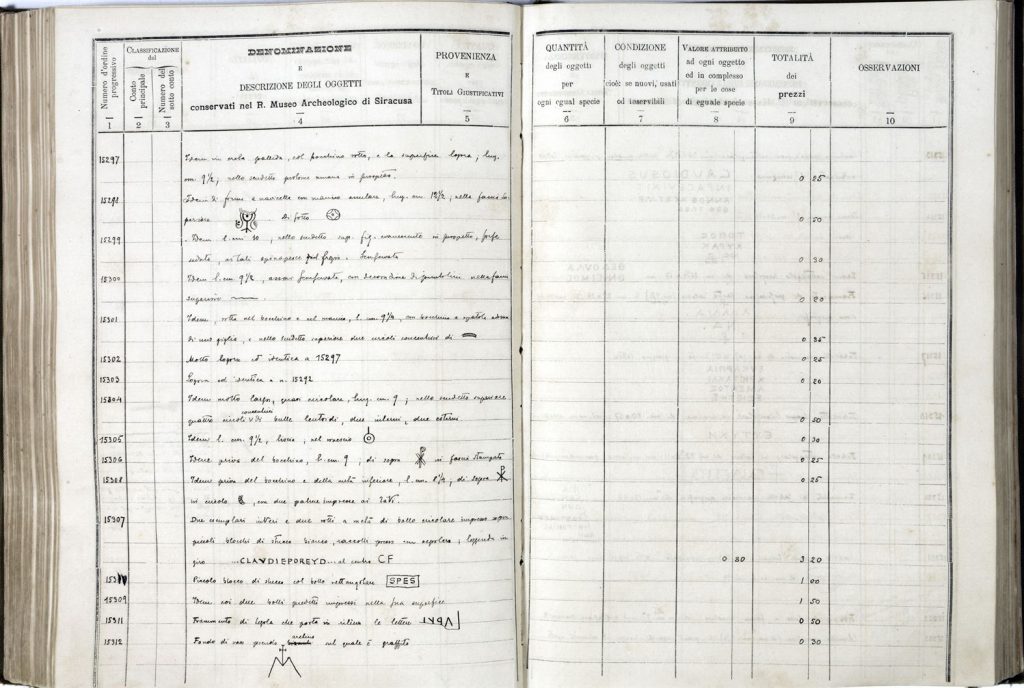 Numero d'ordine progressivo
CLASSIFICAZIONE del
Conto principale
Numero del sotto conto
DENOMINAZIONE
E
DESCRIZIONE DEGLI OGGETTI
conservati nel R. Museo Archeologico di Siracusa
PROVENIENZA
E
TITOLI GIUSTIFICATIVI
QUANTITÀ
degli oggetti
per
ogni egual specie
CONDIZIONE
degli oggetti
cioè: se nuovi, usati
od inservibili
VALORE ATTRIBUITO
ad ogni oggetto
od in complesso
per le cose
di eguale specie
TOTALITÀ
dei
prezzi
OSSERVAZIONI
1 2 3 4 5 6 7 8 9 10
15297 Idem in creta pallida, col becchino rotto, e la superficie logora, lung.
cm. 9½, nello scudetto protome umana in prospetto. 0 25
15298 Idem di forma a navicella con manico anulare, lung. cm. 12½, nella faccia su-
periore Di sotto 0 50
15299 Idem l. cm 10, nello scudetto sup. fig. in prospetto, forse
0 30
15300 Idem l. cm 9½, assai con decorazione di nella faccia
superiore 0 20
15301 Idem, rotta nel becchino e nel manico, l. cm. 9½, con becchino a
di una giglia, e nello scudetto superiore due circoli concentrici di 0 35
15302 Molto logora ed identica a 15297 0 25
15303 Logora ed identica a n. 15292 0 20
15304 Idem molto larga, quasi circolare, lung. cm. 9; nello scudetto superiore
quattro circoli concentrici due interni, due esterni 0 50
15305 Idem l. cm. 9½, liscia, nel 0 30
15306 Idem priva del becchino, l. cm. 9, di sopra in faccia stampato 0 25
15308 Idem priva del becchino e della metà inferiore, l. cm. 8½, di sopra 0 25
in circolo, con due palme impresse ai lati.
15307 Due esemplari interi e due rotti a metà di bollo circolare impresso sopra
piccoli blocchi di stucco bianco, raccolti presso un sepolcro; leggenda in
giro ...CLAVDIEPOREYD... al centro CF 0 80 3 20
Piccolo blocco di stucco col bollo rettangolare SPES 1 00
15309 Idem coi due bolli predetti impressi nella sua superficie 1 50
15311 Frammento di tegola che porta in rilievo le lettere 0 50
15312 Fondo di vaso sul quale è graffito 0 30